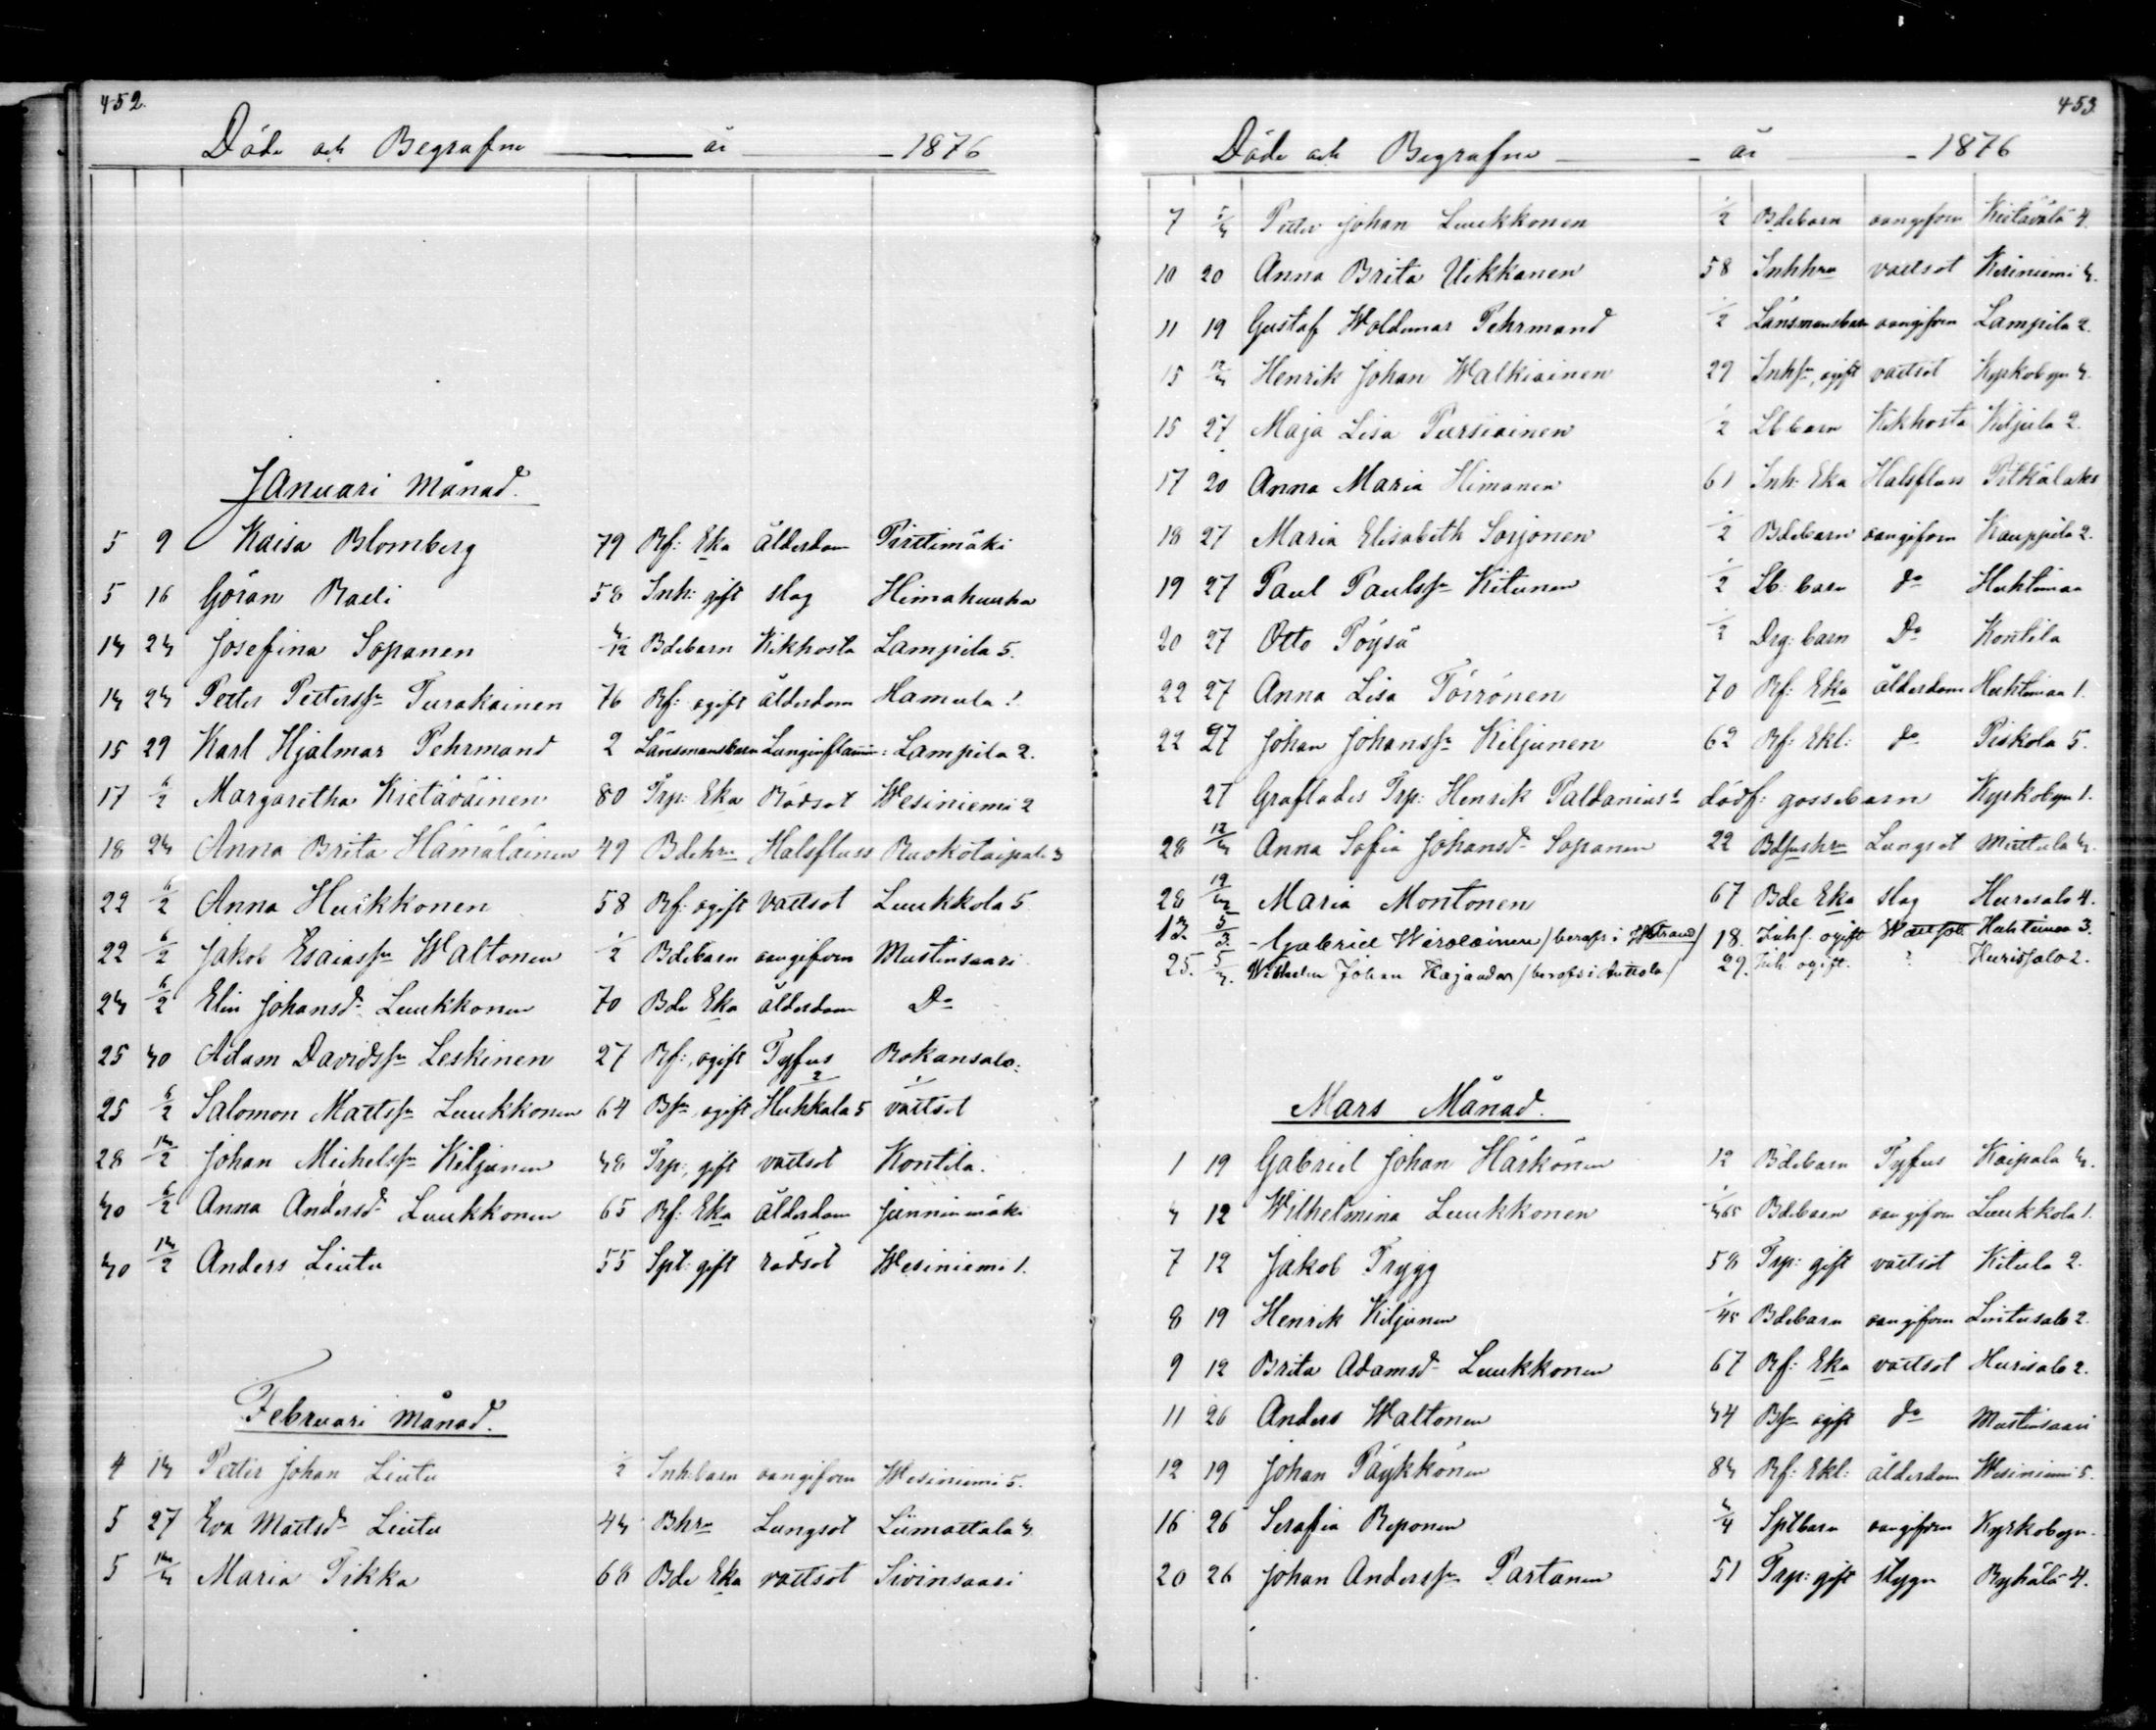 452.
Döde och Begrafne år 1876
Januari Månad.
5 9 Kaisa Blomberg 79 Rf: Eka ålderdom Pirttimäki
5 16 Göran Raeli 58 Inh: gift slag Himahuuha
13 23 Josefina Sopanen 3/12 Bdebarn Kikhosta Lampila 5.
13 23 Petter Petterssn Turakainen 76 Rf: ogift ålderdom Hamula 1
15 29 Karl Hjalmar Pehrmand 2 Länsmansbarn Lunginflamm: Lampila 2.
17 6/2 Margaretha Kietäväinen 80 Trp: Eka Rödsot Wesiniemi 2
18 23 Anna Brita Hämäläinen 49 Bdehru Halsfluss Ruokotaipale 3
22 6/2 Anna Huikkonen 58 Rf: ogift vattsot Luukkola 5
22 6/2 Jakob Esaiassn Waltonen 1/2 Bdebarn oangifven Mustinsaari
23 6/2 Elin Johansd Luukkonen 70 Bde Eka ålderdom Do
25 30 Adam Davidssn Leskinen 27 Rf:, ogift Tyfus Rokansalo:
25 6/2 Salomon Mattssn Luukkonen 64 Bsn, ogift Huhkala 5 vattsot
28 13/2 Johan Michelssn Kiljunen 38 Trp:, gift vattsot Kontila.
30 6/2 Anna Andersd Luukkonen 65 Rf: Eka ålderdom Junninmäki
30 13/2 Anders Liutu 55 Spt: gift rödsot Wesiniemi 1.
Februari Månad.
4 13 Petter Johan Liutu 1/2 Inh:barn oangifven Wesiniemi 5.
5 27 Eva Mattsd Liutu 43 Bhru Lungsot Liimattala 3.
5 12/3 Maria Tikka 68 Bde Eka vattsot Sivinsaari
453.
Döde och Begrafne år 1876
7 5/3 Petter Johan Luukkonen 1/2 Bdebarn oangifven Kietävälä 4.
10 20 Anna Brita Uikkanen 58 Inhhru vattsot Kesiniemi 3.
11 19 Gustaf Woldemar Pehrmand 1/2 Länsmansbarn oangifven Lampila 2.
15 12/3 Henrik Johan Walkiainen 29 Inhsn, ogift vattsot Kyrkobyn 3.
15 27 Maja Lisa Pursiainen 1/2 Lbbarn Kikhosta Kiljula 2.
17 20 Anna Maria Himanen 61 Inh: Eka Halsfluss Pitkälaks
18 27 Maria Elisabeth Sorjonen 1/2 Bdebarn oangifven Kauppila 2.
19 27 Paul Paulssn Kitunen 1/2 Lb: barn do Huhtimaa
20 27 Otto Pöysä 1/2 Drg: barn Do Kontila
22 27 Anna Lisa Törrönen 70 Rf: Eka ålderdom Huhtimaa 1.
22 27 Johan Johanssn Kiljunen 62 Rf: Ekl: do Piskola 5.
27 Graflades Trp: Henrik Paldanius's dödf: gossebarn Kyrkobyn 1.
28 12/3 Anna Sofia Johansd Sopanen 22 Bdsnhru Lungsot Miettula 3.
28 12/3 Maria Montonen 67 Bde Eka slag Hurisalo 4.
13. 5/3. Gabriel Wirolainen / 18. Inhs. ogift Wattsot. Huhtimaa 3.
25. 5/3. Wilhelm Johan Kajander / 29. Inh. ogift. ? Hurissalo 2.
Mars Månad.
1 19 Gabriel Johan Härkönen 12 Bdebarn Tyfus Kaipala 3.
3 12 Wilhelmina Luukkonen 1/365 Bdebarn oangifven Luukkola 1.
7 12 Jakob Trygg 58 Trp: gift vattsot Kitula 2.
8 19 Henrik Kiljunen 1/45 Bdebarn oangifven Liutusalo 2.
9 12 Brita Adamsd Luukkonen 67 Rf: Eka vattsot Hurisalo 2.
11 26 Anders Waltonen 34 Bsn ogift do Mustinsaari
12 19 Johan Päykkönen 83 Rf: Ekl: ålderdom Wesiniemi 5.
16 26 Serafia Reponen 3/4 Sptbarn oangifven Kyrkobyn.
20 26 Johan Anderssn Partanen 51 Trp: gift stygn Ryhälä 4.